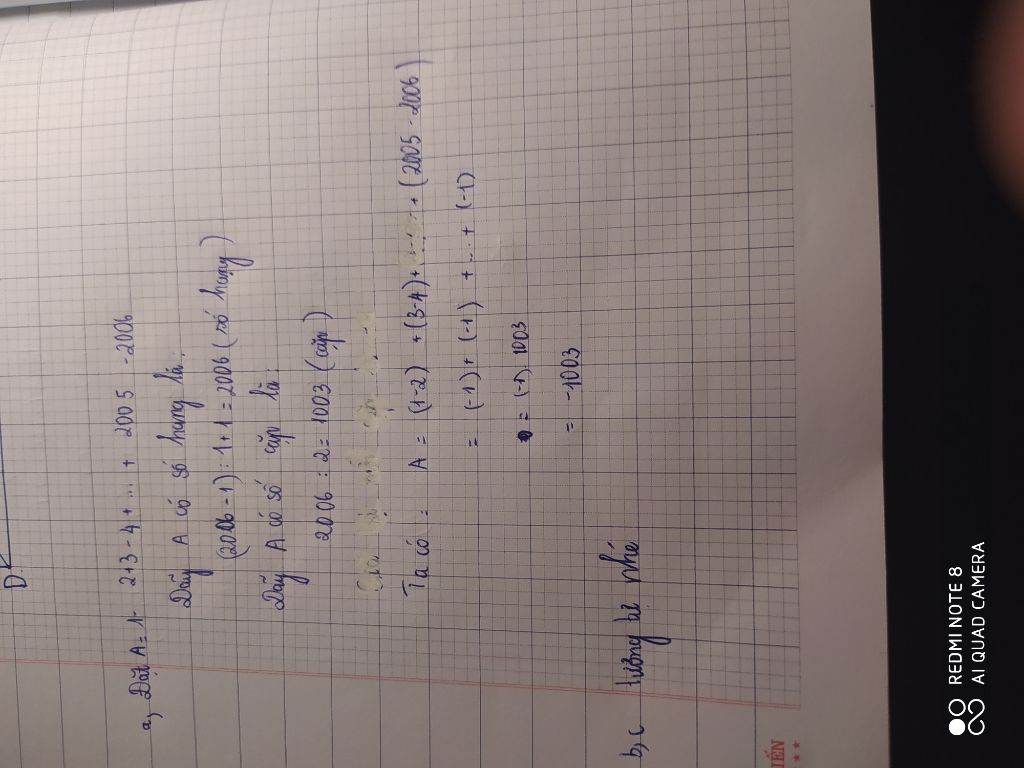 D
a, Đặt A = 1 - 2+3 - 4 + ... + 2005 - 2006
Dãy A có số hạng là:
(2006 - 1) : 1 + 1 = 2006 (số hạng)
Dãy A có số cặp là:
2006 : 2 = 1003 (cặp)
Ta có: A = (1-2) + (3-4) + (...) + (2005 - 2006)
= (-1) + (-1) + ... + (-1)
= (-1) . 1003
= -1003
b, c tương tự nhé
IẾN
REDMI NOTE 8
AI QUAD CAMERA